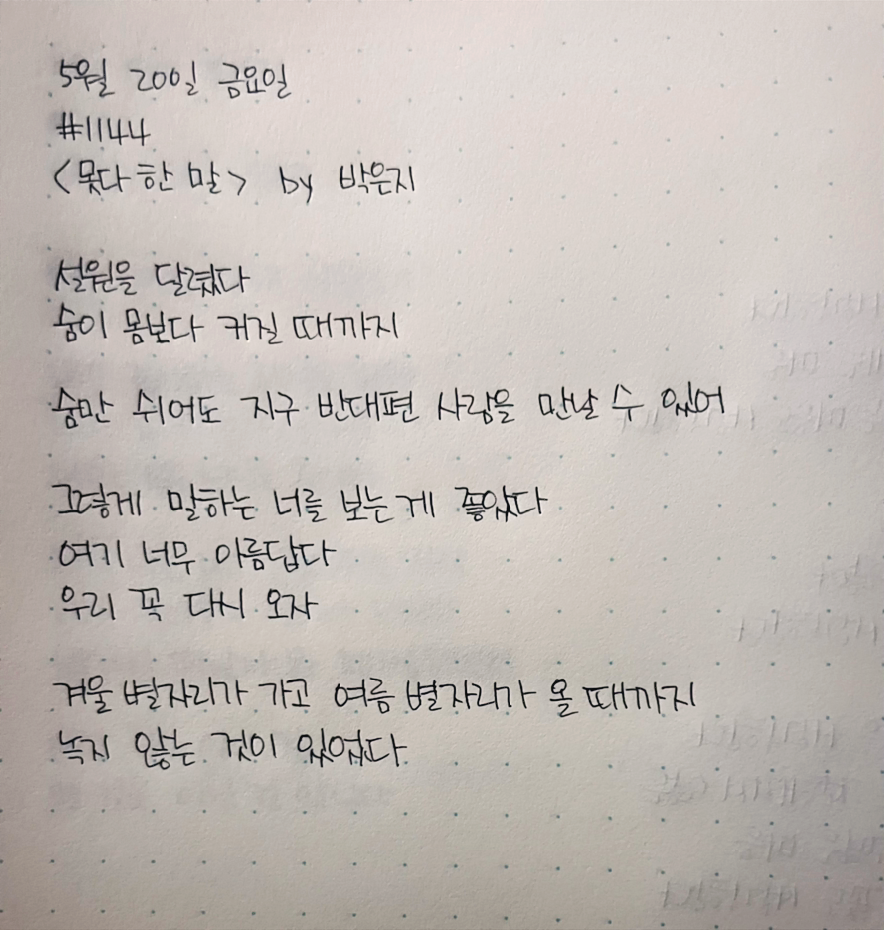 5월 20일 금요일
#1144
<못다 한 말> by 박은지
설원을 달렸다
숨이 몸보다 커질 때까지
숨만 쉬어도 지구 반대편 사람을 만날 수 있어
그렇게 말하는 너를 보는 게 좋았다
여기 너무 아름답다
우리 꼭 다시 오자
겨울 별자리가 가고 여름 별자리가 올 때까지
녹지 않는 것이 있었다